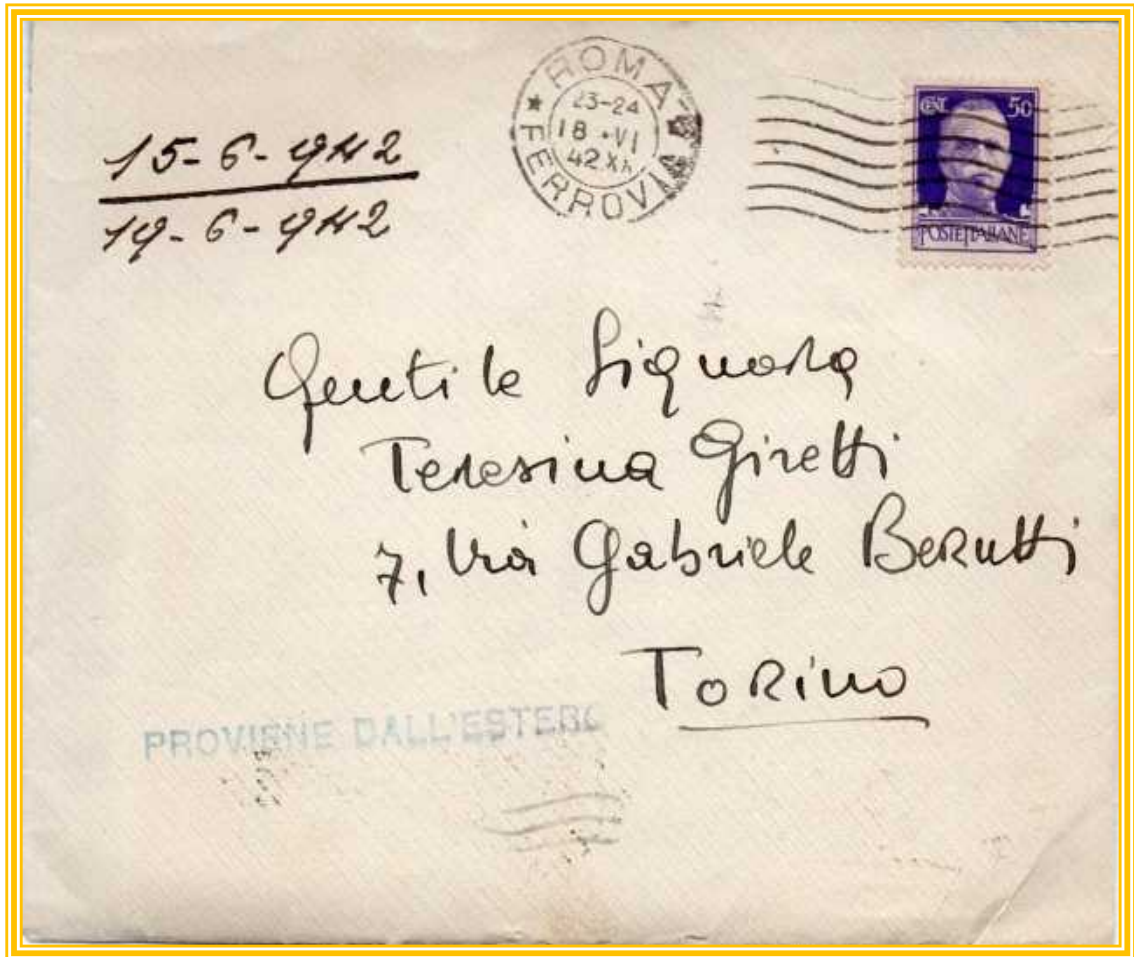 ROMA
FERROVIA
23-24
18 • VI
42 XX
CENT. 50
POSTE ITALIANE
15-6-942
19-6-942
Gentile Signora
Teresina Giretti
7, Via Gabriele Berutti
Torino
PROVIENE DALL'ESTERO